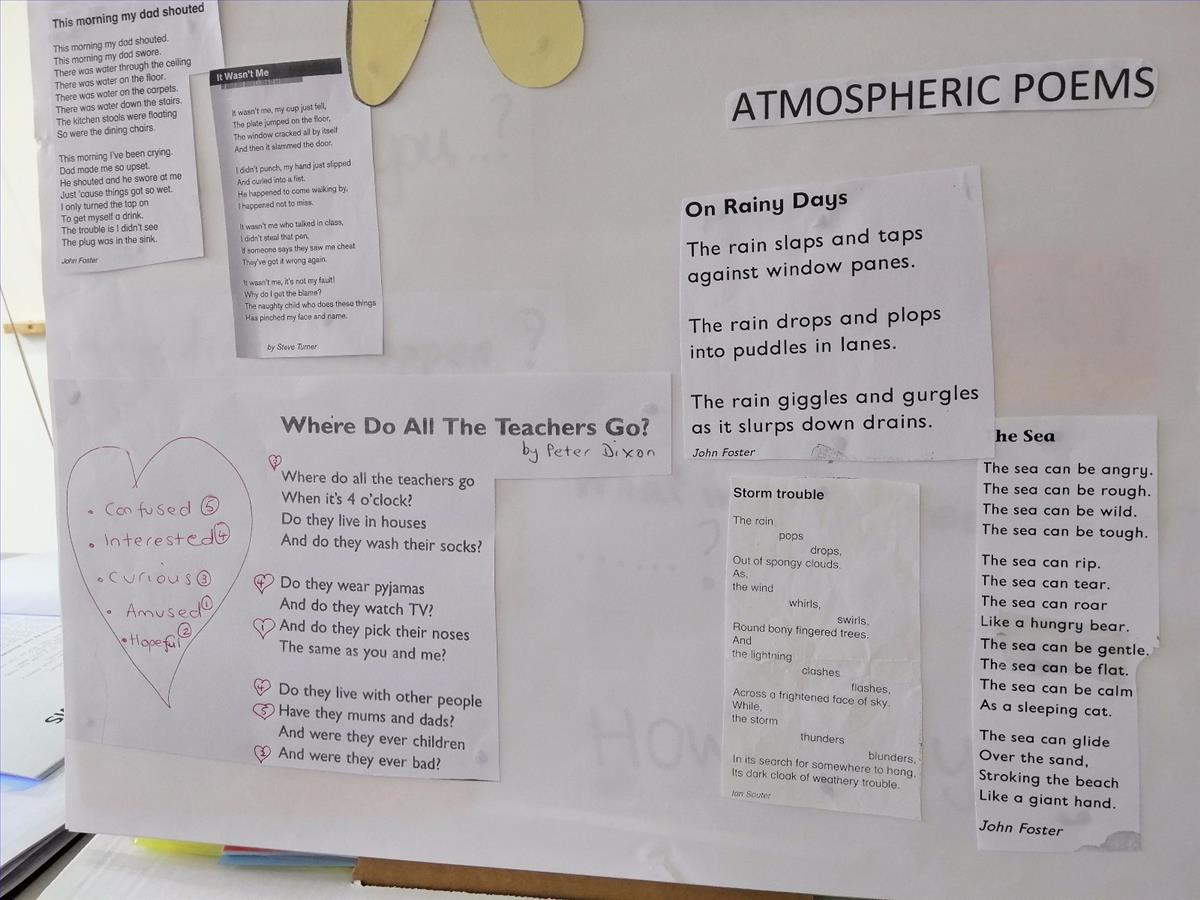 This morning my dad shouted
This morning my dad shouted.
This morning my dad swore.
There was water through the ceiling
There was water on the floor.
There was water on the carpets.
There was water down the stairs.
The kitchen stools were floating
So were the dining chairs.
This morning I've been crying.
Dad made me so upset.
He shouted and he swore at me
Just 'cause things got so wet.
I only turned the tap on
To get myself a drink.
The trouble is I didn't see
The plug was in the sink.
John Foster
It Wasn't Me
It wasn't me, my cup just fell,
The plate jumped on the floor,
The window cracked all by itself
And then it slammed the door.
I didn't punch, my hand just slipped
And curled into a fist.
He happened to come walking by,
I happened not to miss.
It wasn't me who talked in class,
I didn't steal that pen,
If someone says they saw me cheat
They've got it wrong again.
It wasn't me, it's not my fault!
Why do I get the blame?
The naughty child who does these things
Has pinched my face and name.
by Steve Turner
Where Do All The Teachers Go?
by Peter Dixon
3
Where do all the teachers go
When it's 4 o'clock?
Do they live in houses
And do they wash their socks?
4 Do they wear pyjamas
And do they watch TV?
1 And do they pick their noses
The same as you and me?
4 Do they live with other people
5 Have they mums and dads?
And were they ever children
3 And were they ever bad?
• Confused 5
• Interested 4
• Curious 3
• Amused 1
• Hopeful 2
ATMOSPHERIC POEMS
On Rainy Days
The rain slaps and taps
against window panes.
The rain drops and plops
into puddles in lanes.
The rain giggles and gurgles
as it slurps down drains.
John Foster
Storm trouble
The rain
pops
drops,
Out of spongy clouds.
As,
the wind
whirls,
swirls,
Round bony fingered trees.
And
the lightning
clashes
flashes,
Across a frightened face of sky.
While,
the storm
thunders
blunders,
In its search for somewhere to hang,
Its dark cloak of weathery trouble.
Ian Souter
he Sea
The sea can be angry.
The sea can be rough.
The sea can be wild.
The sea can be tough.
The sea can rip.
The sea can tear.
The sea can roar
Like a hungry bear.
The sea can be gentle.
The sea can be flat.
The sea can be calm
As a sleeping cat.
The sea can glide
Over the sand,
Stroking the beach
Like a giant hand.
John Foster